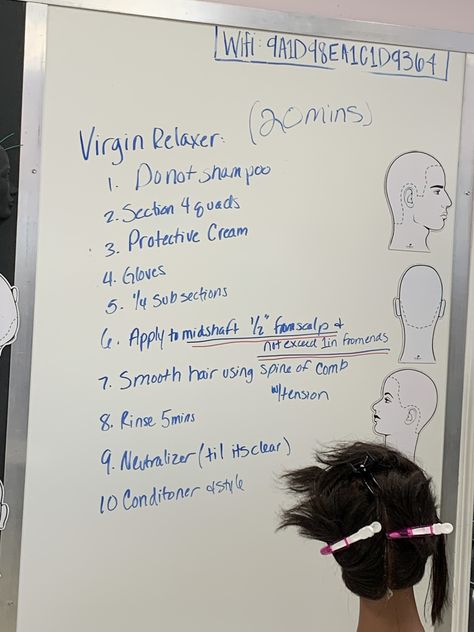 Wifi: 9A1D98EA1C1D9364
(20mins)
Virgin Relaxer:
1. Do not shampoo
2. Section 4 quads
3. Protective Cream
4. Gloves
5. 1/4 Subsections
6. Apply to midshaft 1/2" from scalp &
not exceed 1in from ends
7. Smooth hair using spine of comb
w/tension
8. Rinse 5mins
9. Neutralizer ('til its clear)
10 Conditoner & style